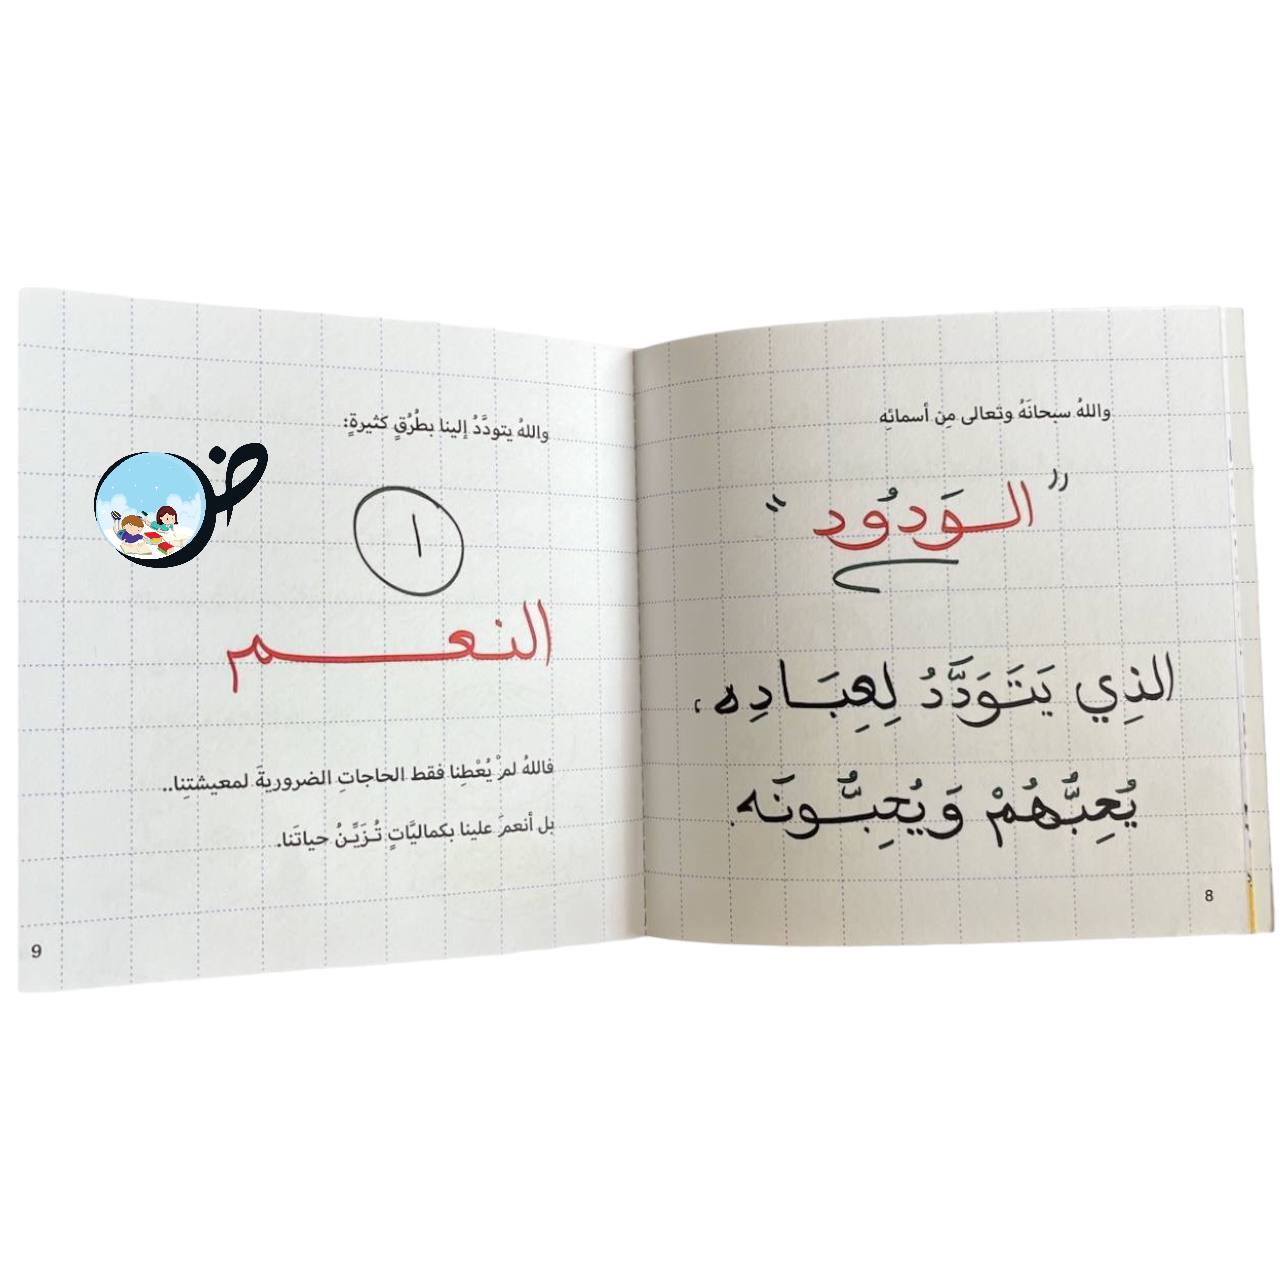 واللهُ سبحانَهُ وتعالى مِن أسمائِهِ
"الوَدُود"
الذِي يَتَوَدَّدُ لِعِبَادِه،
يُحِبُّهُمْ وَيُحِبُّونَه.
8
واللهُ يتودَّدُ إلينا بطُرُقٍ كثيرةٍ:
١
النعم
فاللهُ لمْ يُعْطِنا فقط الحاجاتِ الضروريةَ لمعيشتِنا..
بل أنعمَ علينا بكماليَّاتٍ تُزَيِّنُ حياتَنا.
9
ض